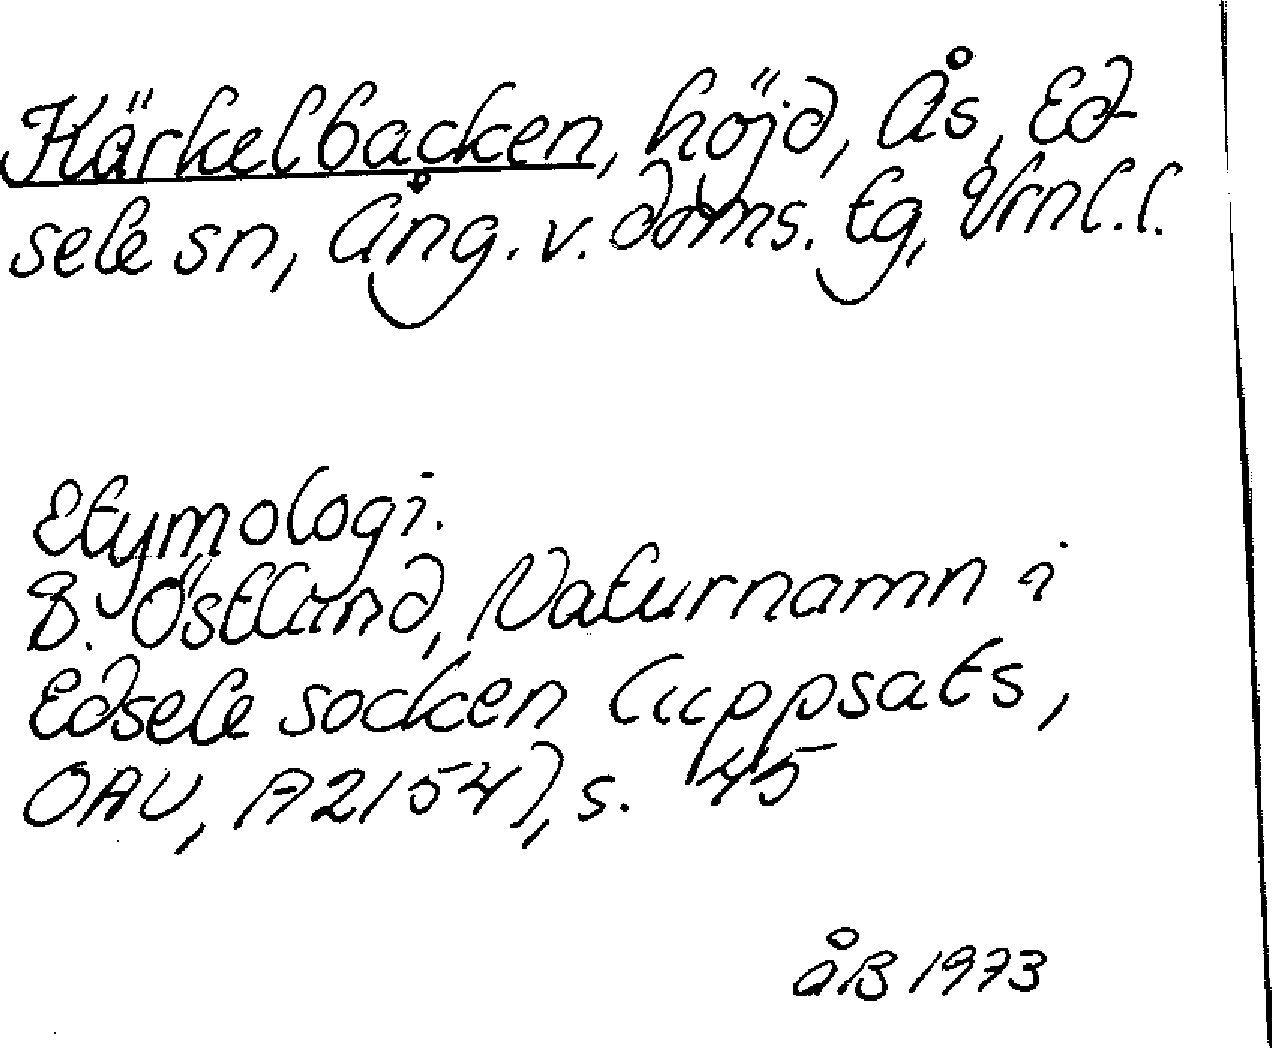 Härkelbacken, höjd, Ås, Ed-
sele sn, Ång. v. doms. tg, Vrnl. l.
Etymologi.
B. Östlund, Naturnamn i
Edsele socken (uppsats,
OAU, A2154), s. 45
åB 1973